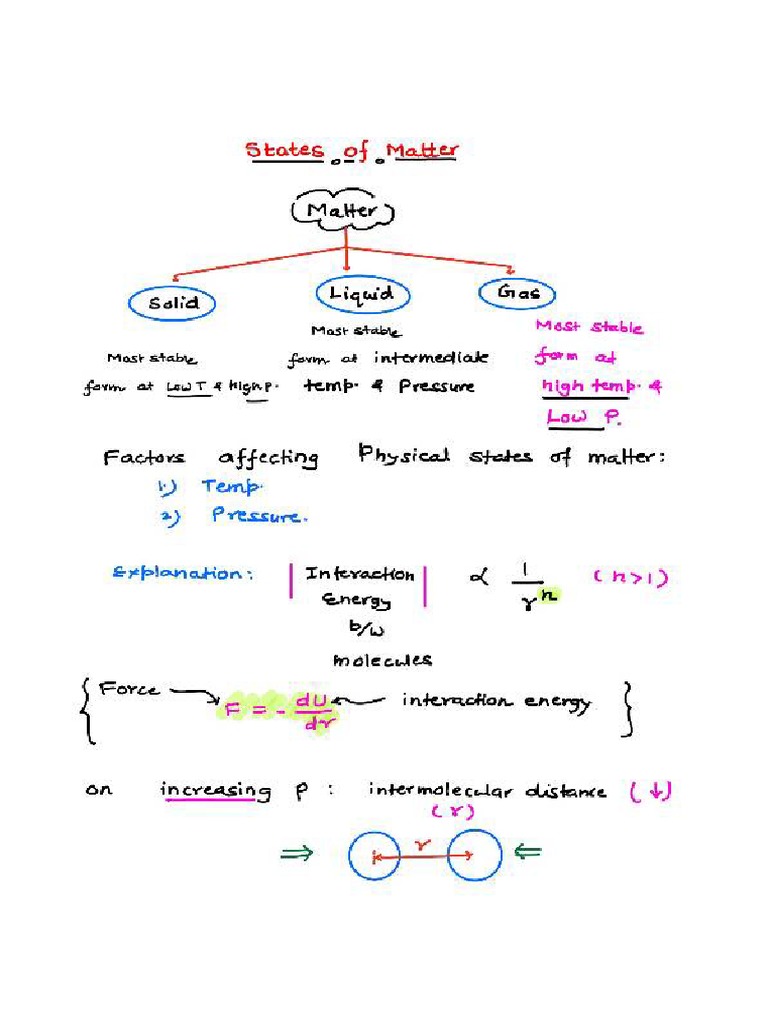 States of Matter
Matter
Solid
Liquid
Gas
Most stable
form at Low T & high P.
Most stable
form at intermediate
temp. & Pressure
Most stable
form at
high temp. &
Low P.
Factors affecting Physical states of matter:
1.) Temp.
2) Pressure.
Explanation: | Interaction Energy | ∝ 1/r^n (n>1)
b/w
molecules
{ Force → F = - dU/dr ← interaction energy }
on increasing P : intermolecular distance (↓)
(r)
⇒ r ⇐